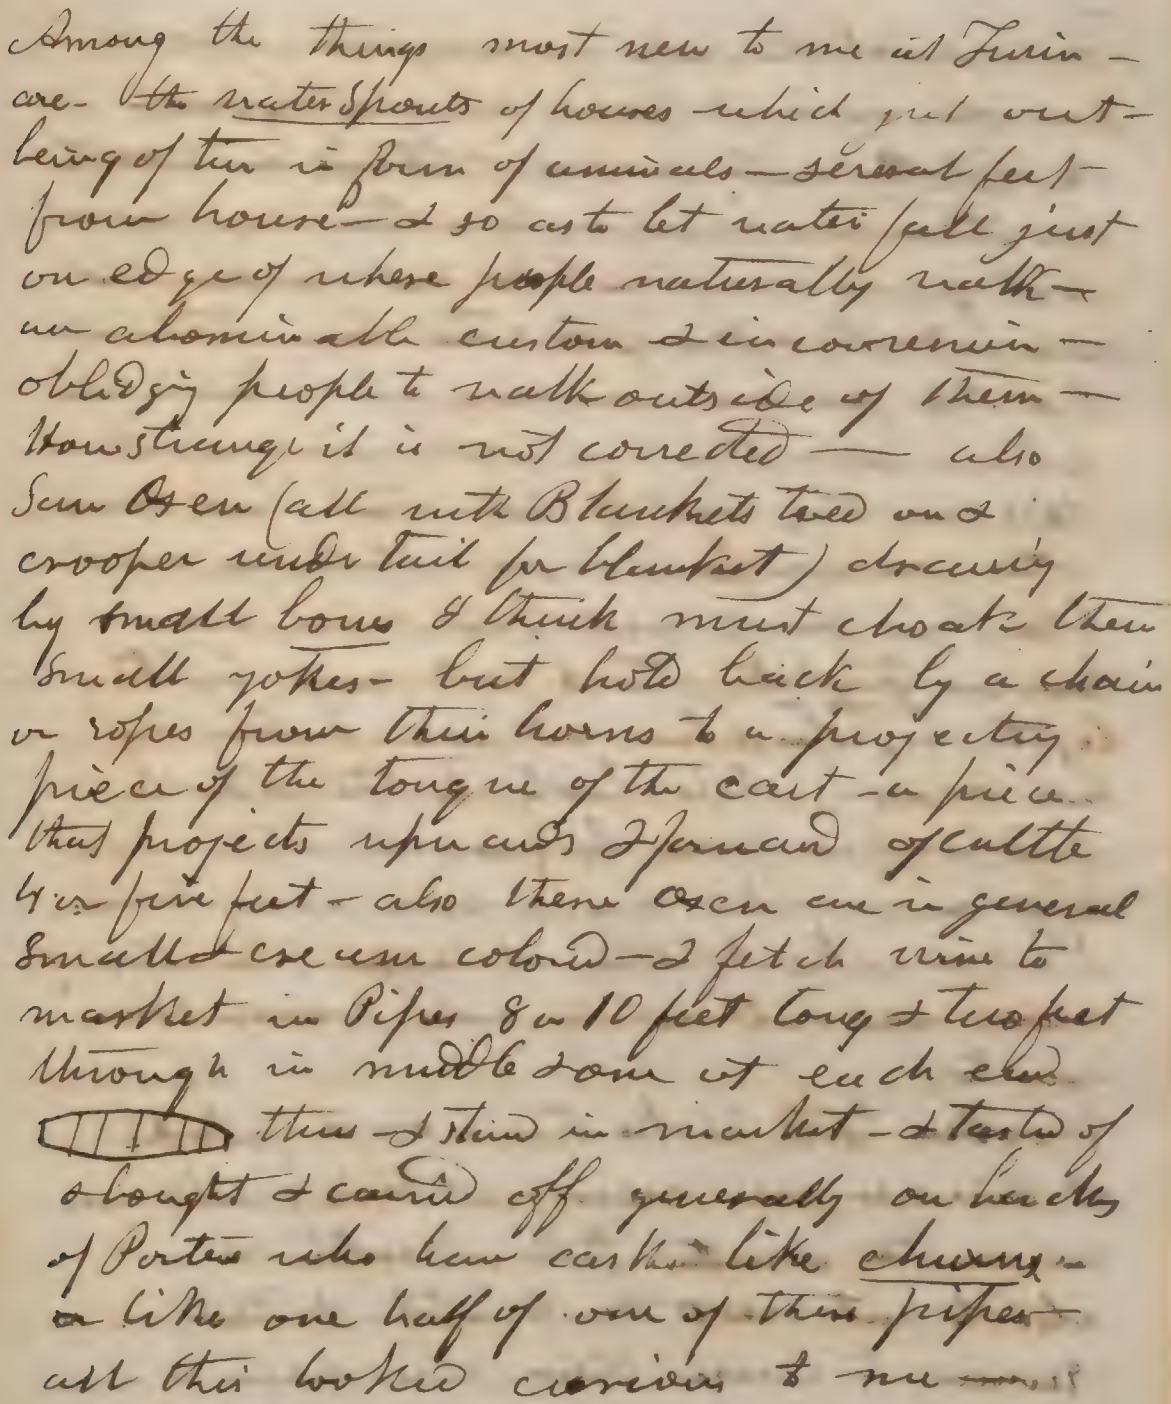 Among the things most new to me at Turin -
are - the water Spouts of houses which jut out -
being of tin in form of animals - several feet -
from house - & so as to let water fall just
on edge of where people naturally walk -
an abominable custom & in convenien -
oblidgig people to walk outside of them -
How strange it is not corrected - also
Saw Oxen (all with Blankets tied on &
crooper under tail for blanket) drawing
by small bows I think must choak them
small yokes - but hold back by a chain
or ropes from their horns to a projecting
piece of the tongue of the cart - a piece
that projects upwards & forward of cattle
4 or five feet - also these oxen are in general
small & cream colored - & fetch wine to
market in Pipes 8 or 10 feet long & two feet
through in middle & one at each end
thus - & stand in market - & tasted of
& bought & carried off generally on backs
of Porters who have casks like churns -
or like one half of one of these pipes -
all this looked curious to me